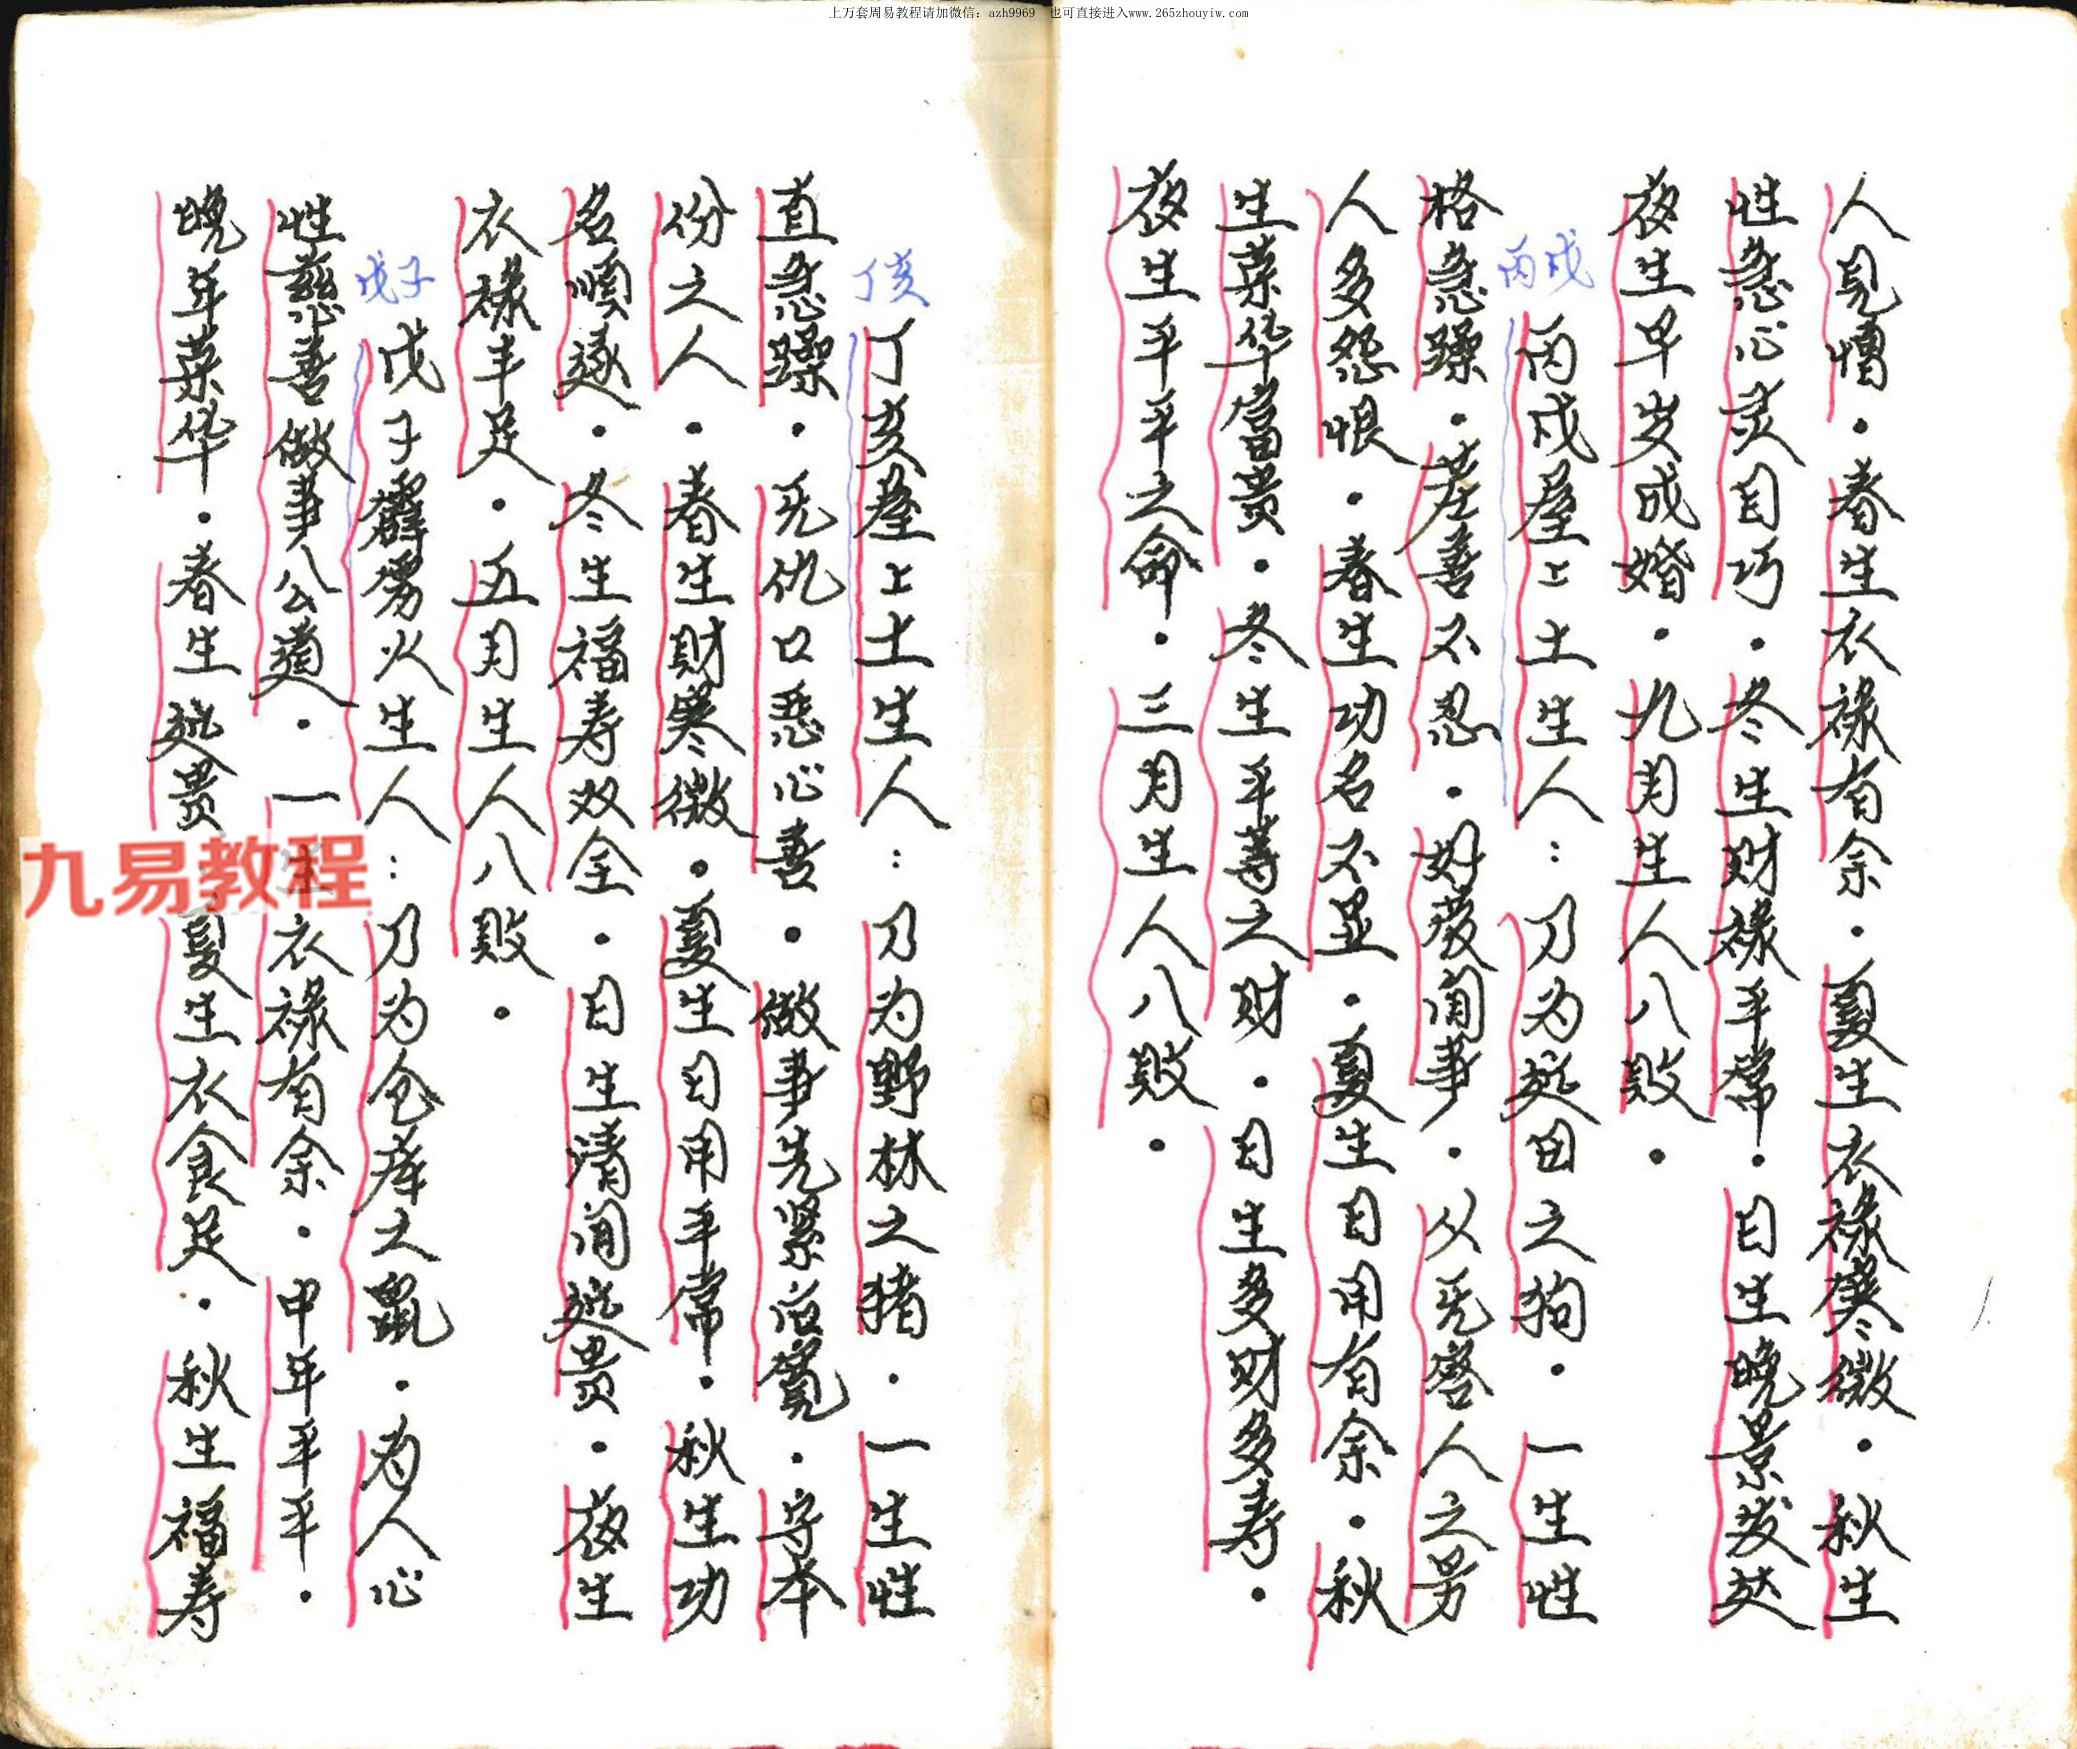 上万套周易教程请加微信：azh9969 也可直接进入www.265zhouyiw.com
人見憎．春生衣禄有余．夏生衣禄寒微．秋生
性急心灵目巧．冬生财禄平常．日生晚景发达
夜生早岁成婚．九月生人八败．
丙戌
丙戌屋上土生人：乃为 田之狗．一生性
格急躁． 善不忍．好發闹事．以 人之
人多怨恨．春生功名不显．夏生日用有余．秋
生荣华富贵．冬生平等之财．日生多财多寿．
夜生平平之命．三月生人八败．
丁亥
丁亥屋上土生人：乃为野林之猪．一生性
直急躁． 口恶心善．做事先紧后宽．守本
份之人．春生財寒微．夏生日用平常．秋生功
名順遂．冬生福寿双全．日生清闲 贵．夜生
衣禄丰足．五月生人八败．
戊子
戊子霹雳火生人：乃为仓 之鼠．为人心
性慈善做事公道．一生衣禄有余．中年平平．
晚年荣华．春生 贵 夏生衣食足．秋生福寿
九易教程